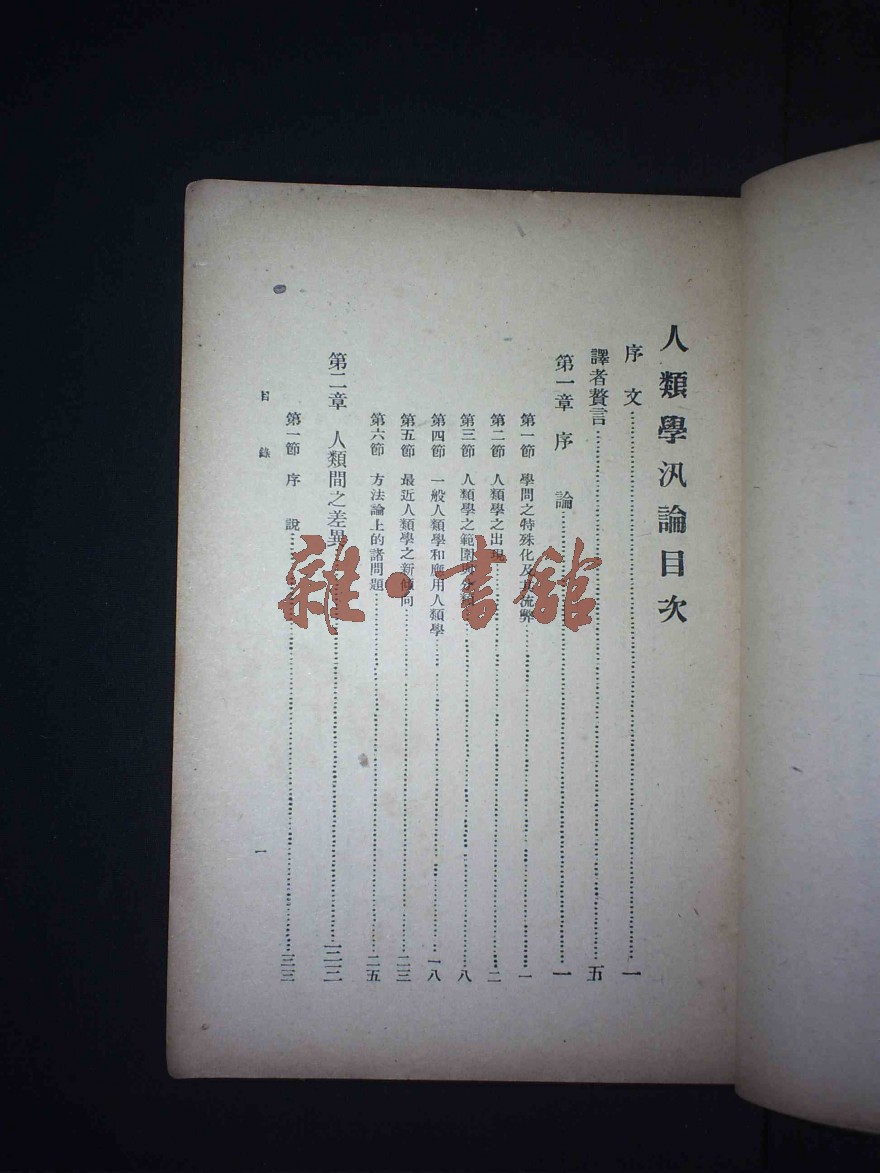 人類學汎論目次
序文……一
譯者贅言……五
第一章 序論……一
第一節 學問之特殊化及其流弊……一
第二節 人類學之出現……二
第三節 人類學之範圍……八
第四節 一般人類學和應用人類學……一八
第五節 最近人類學之新傾向……二三
第六節 方法論上的諸問題……二五
第二章 人類間之差異……三三
第一節 序說……三三
目錄
一
雜·書館